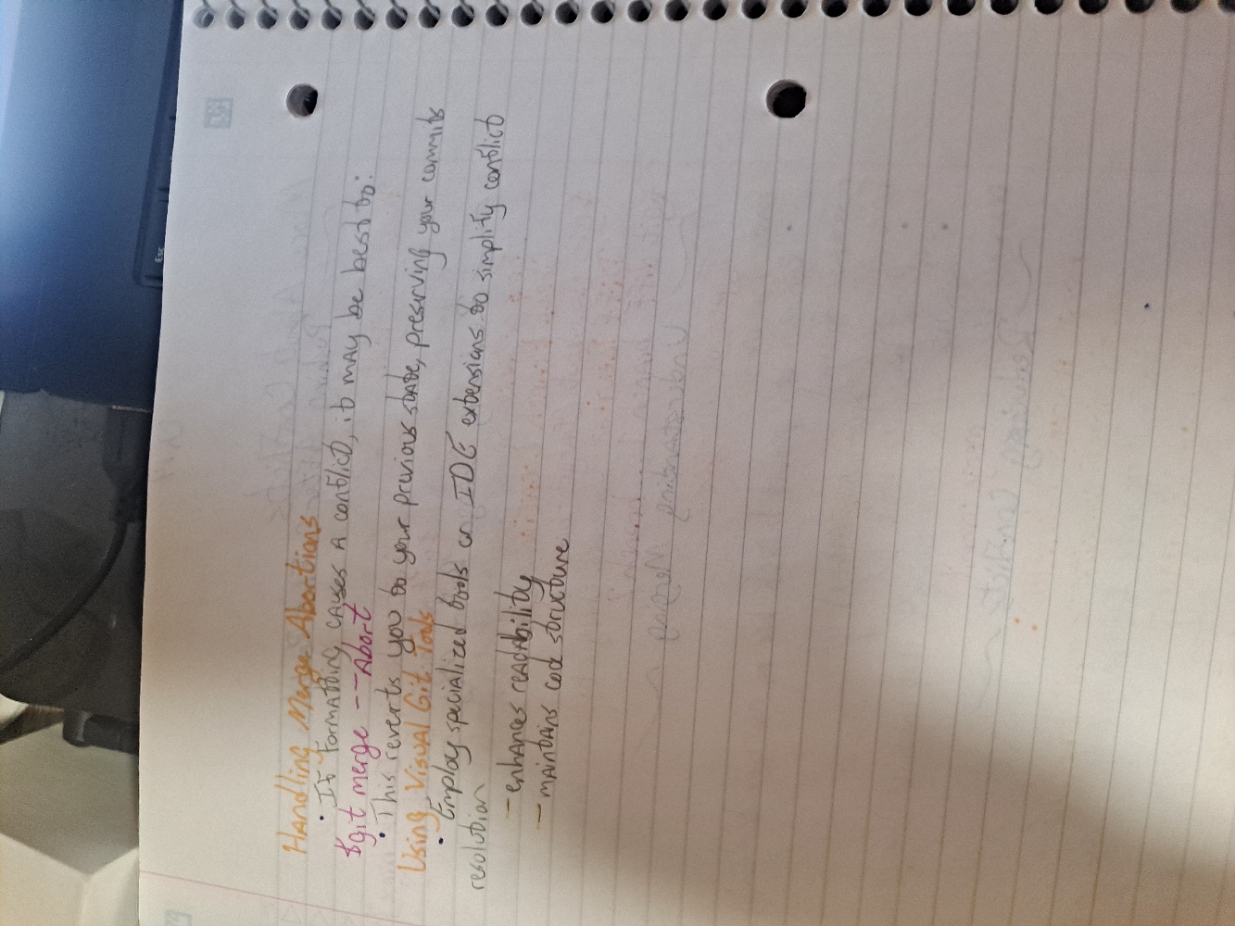 Esc
Handling Merge Abortions
• If formatting causes a conflict, it may be best to:
$git merge --Abort
• This reverts you to your previous state, preserving your commits
Using Visual Git Tools
• Employ specialized tools or IDE extensions to simplify conflict
resolution
- enhances readability
- maintains code structure
Understanding Merging
Reducing Conflicts